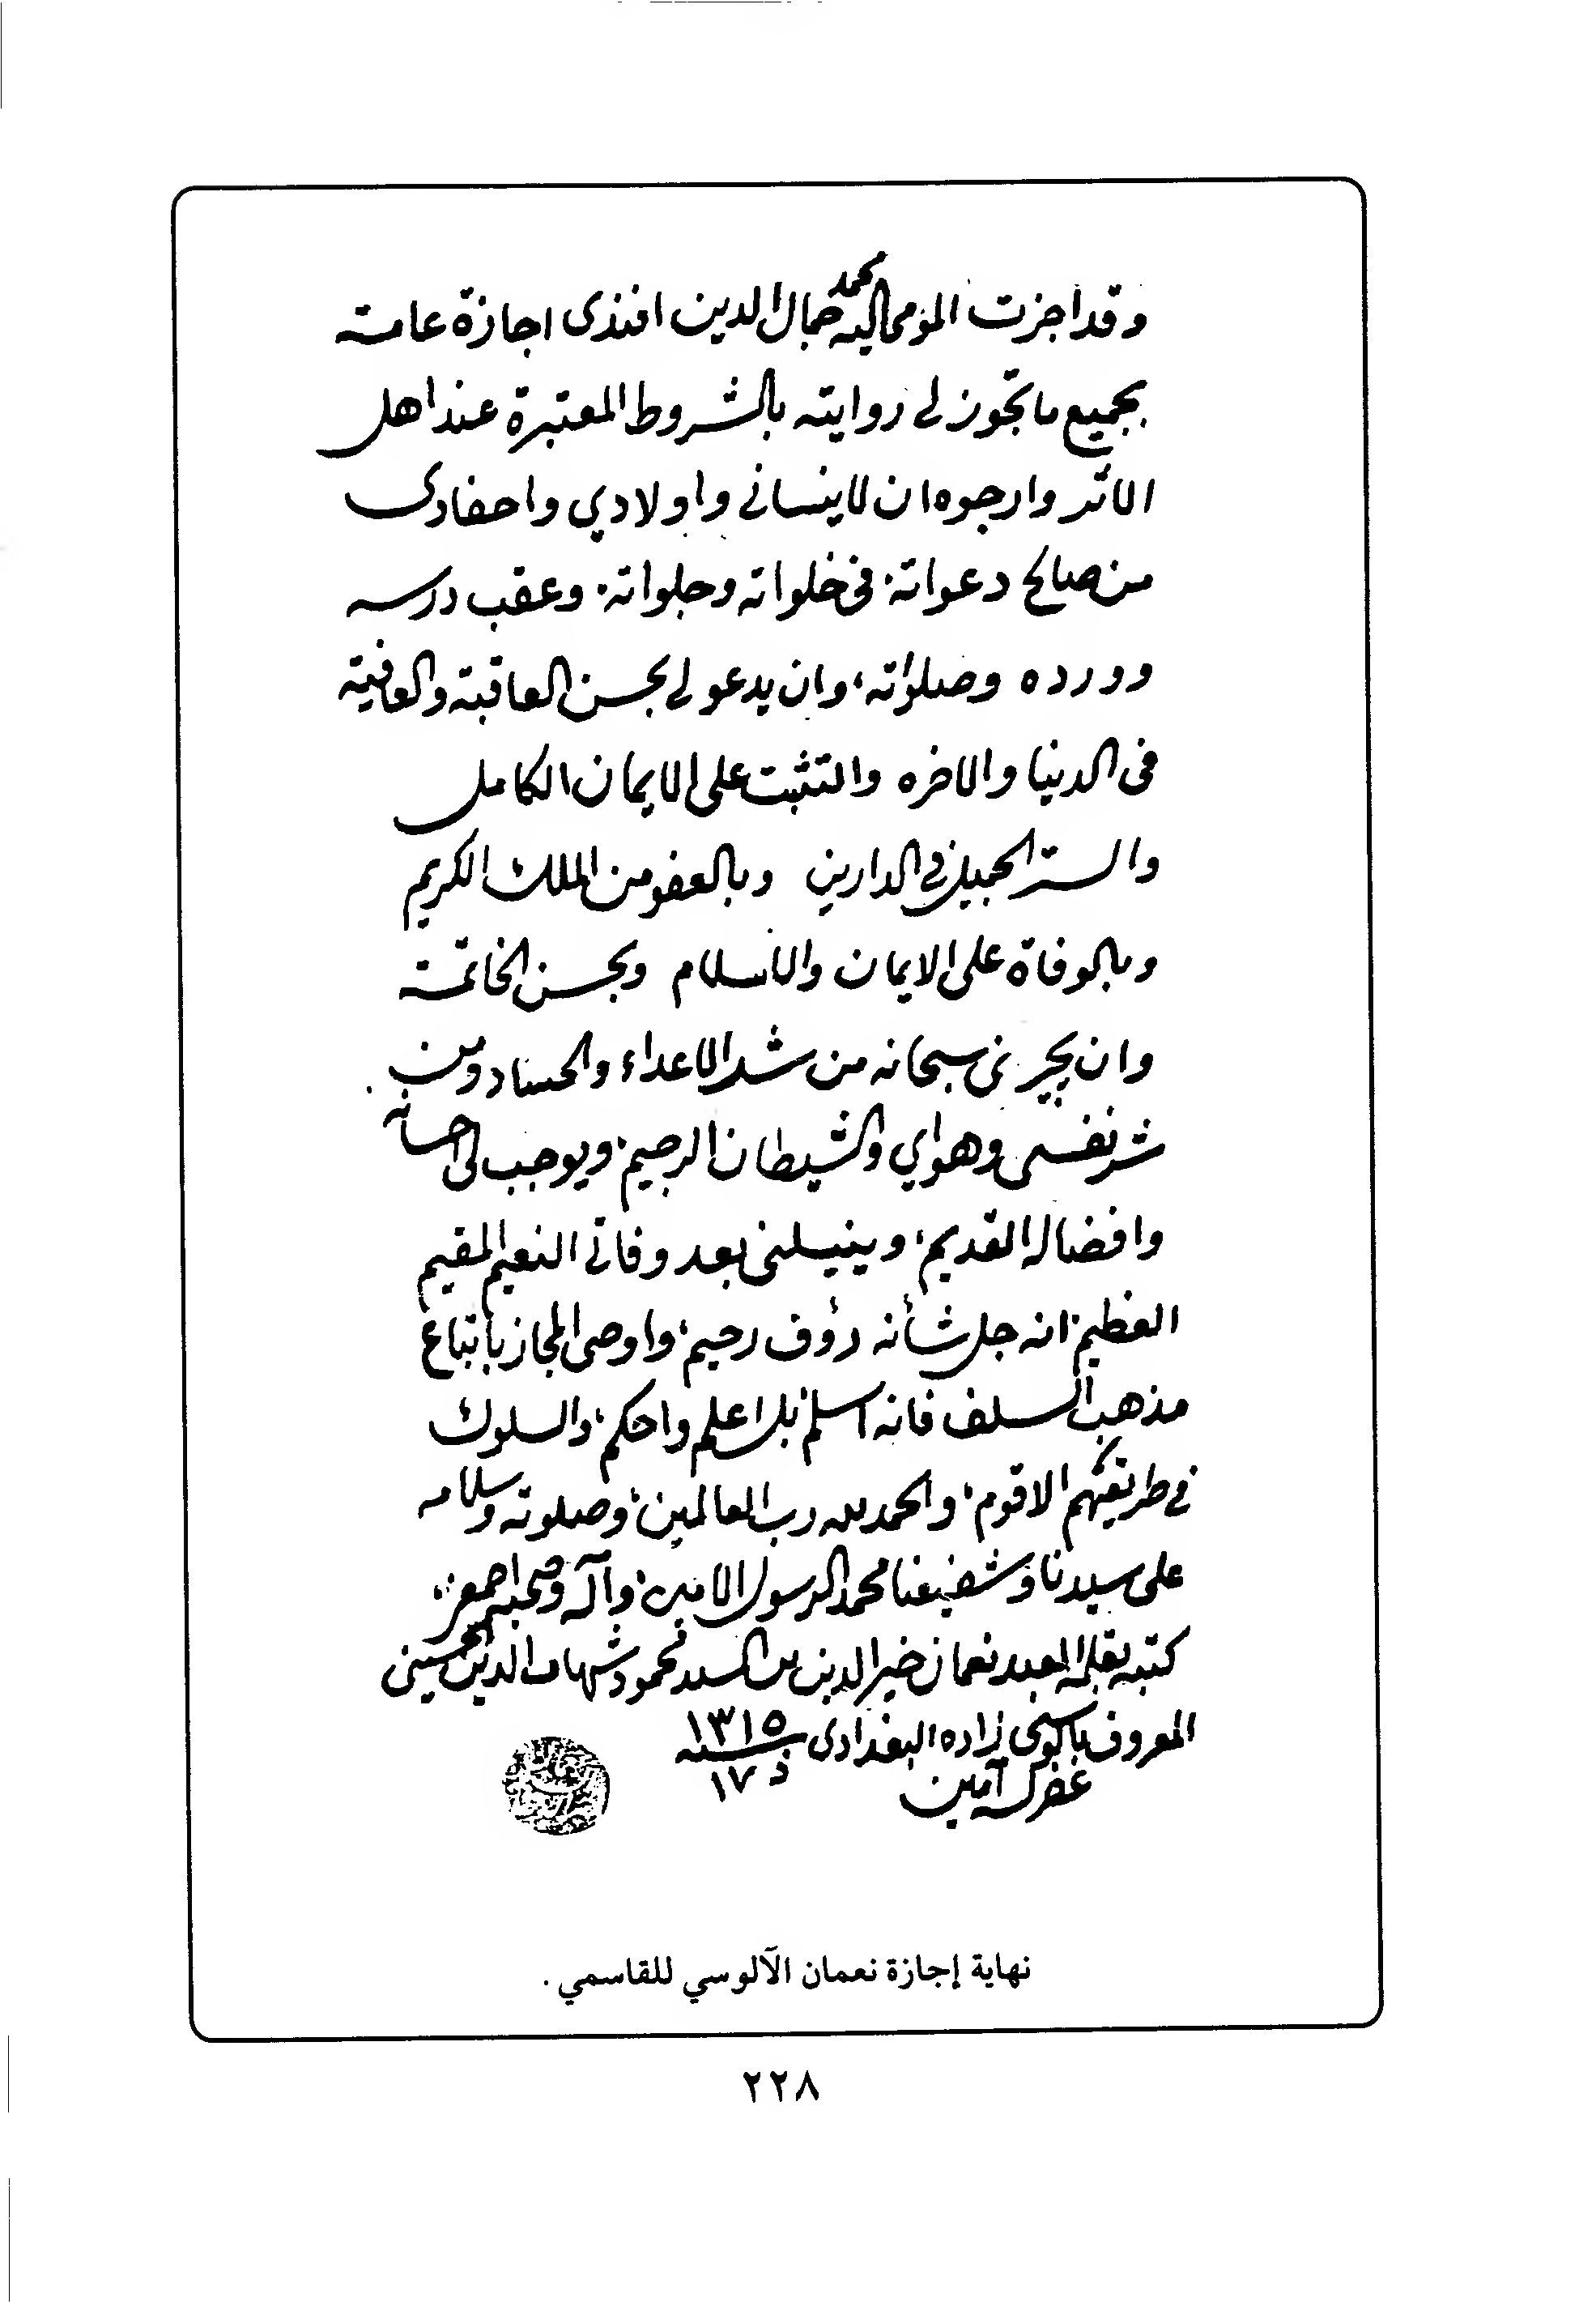 وقد اجزت المومى اليه محمد جمال الدين افندى اجازة عامة
بجميع ما تجوز لي روايته بالشروط المعتبرة عند اهل
الاثر وارجوه ان لا ينساني واولادي واحفادى
من صالح دعواته، في خلواته وجلواته، وعقب درسه
وورده وصلواته، وان يدعو لي بحسن العاقبة والعافية
فى الدنيا والاخره والتثبت على الايمان الكامل
والستر الجميل في الدارين وبالعفو من الملك الكريم
وبالوفاة على الايمان والاسلام وبحسن الخاتمة
وان يجيرنى سبحانه من شر الاعداء والحساد ومن
شر نفسى وهواي والشيطان الرجيم، ويوجب لى احسانه
وافضاله القديم، وينيلنى بعد وفاتي النعيم المقيم
العظيم، انه جل شأنه رؤف رحيم، واوصى المجاز باتباع
مذهب السلف فانه اسلم، بل اعلم واحكم، والسلوك
في طريقتهم الاقوم، والحمد لله رب العالمين، وصلوته وسلامه
على سيدنا وشفيعنا محمد الرسول الامين، وآله وصحبه اجمعين،
كتبه بقلمه العبد نعمان خير الدين بن السيد محمود شهاب الدين الحسينى
المعروف بآلوسى زاده البغدادى سنة ١٣١٥
غفر له آمين ١٧ ذ
نهاية إجازة نعمان الآلوسي للقاسمي .
٢٢٨